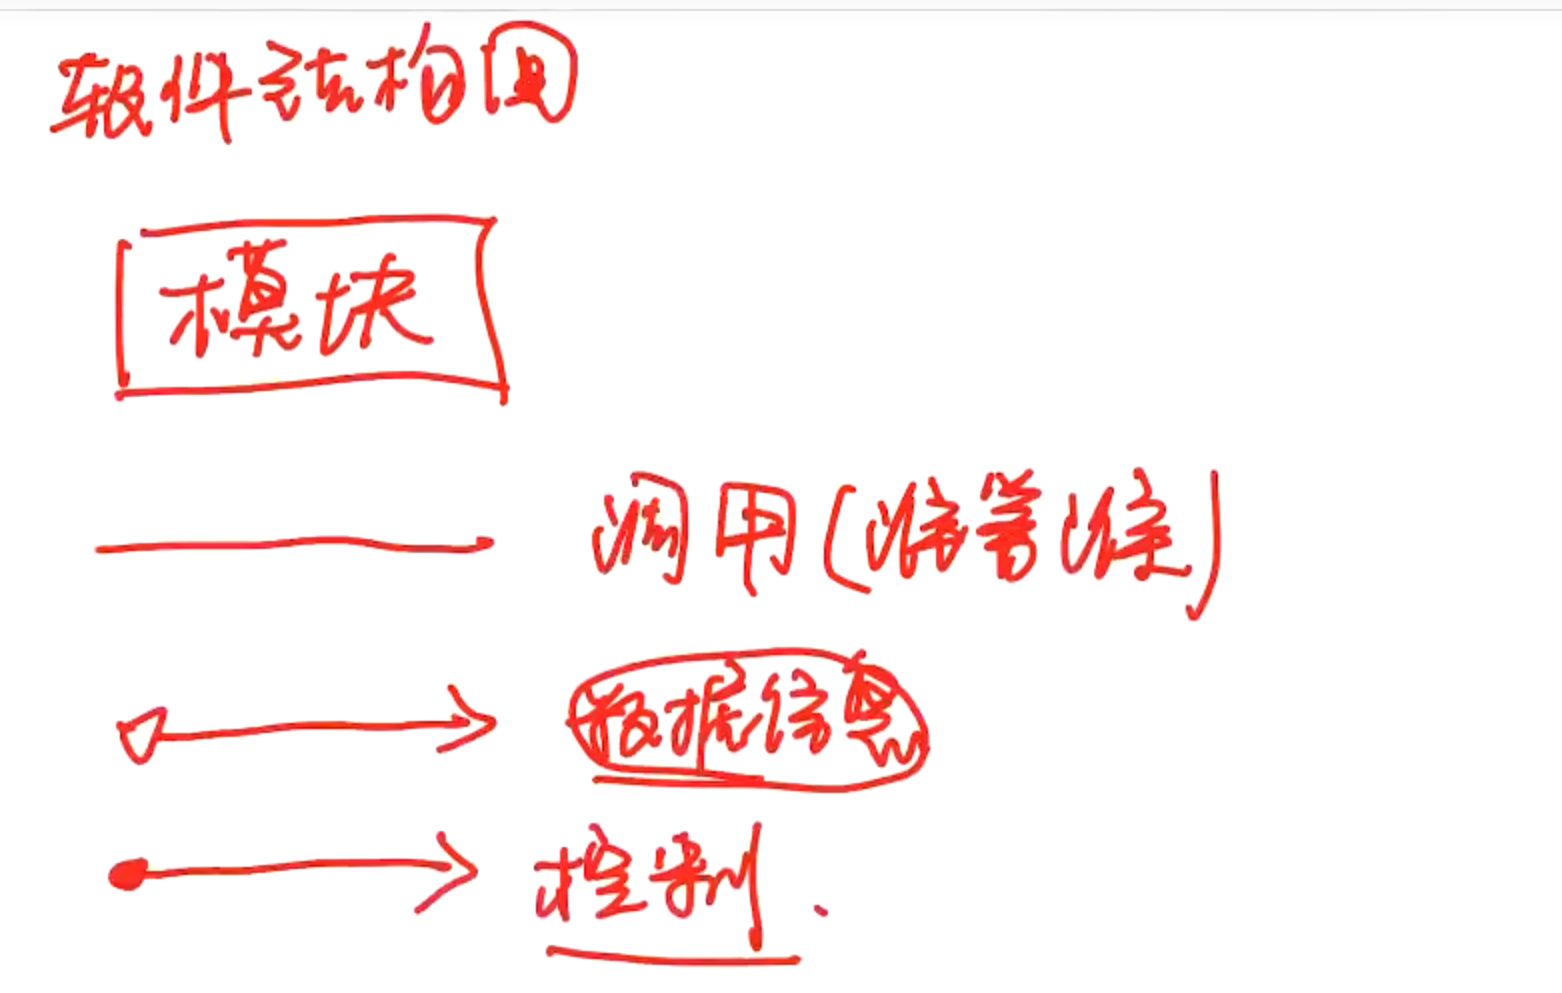 软件结构图
模块
调用(谁管谁)
数据信息
控制.